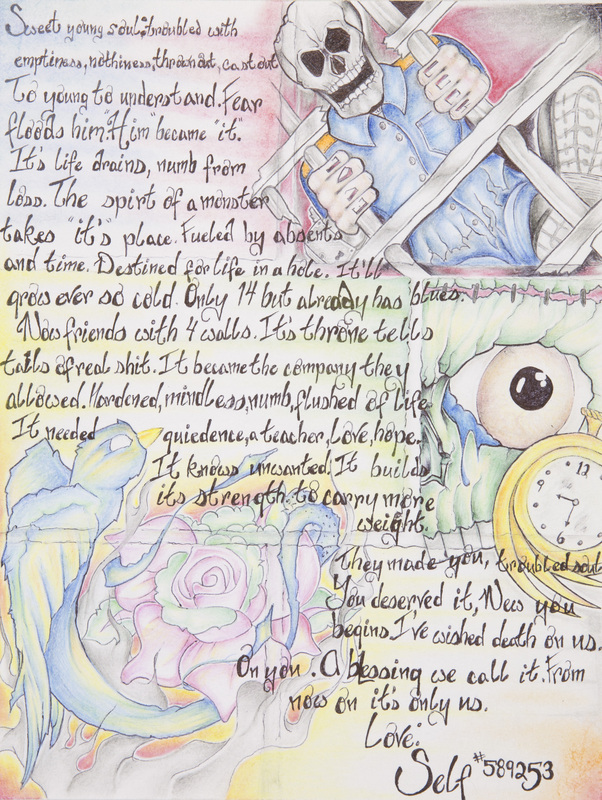 Sweet young soul; troubled with
emptiness, nothiness, thrown out, cast out
To young to understand. Fear
floods him. "Him" became "it".
It's life drains, numb from
loss. The spirt of a monster
takes "it's" place. Fueled by absents
and time. Destined for life in a hole. It'll
grow ever so cold. Only 14 but already has blues.
New friends with 4 walls. It's throne tells
tails of real shit. It became the company they
allowed. Hardened, mindless, numb, flushed of life
It needed guiedence, a teacher, Love, hope.
It knows unwanted. It builds
its strength to carry more
weight.
They made you, troubled soul
You deserved it, New you
begins. I've wished death on us.
On you. A blessing we call it. From
now on it's only us.
Love:
Self #589253
12
9
6